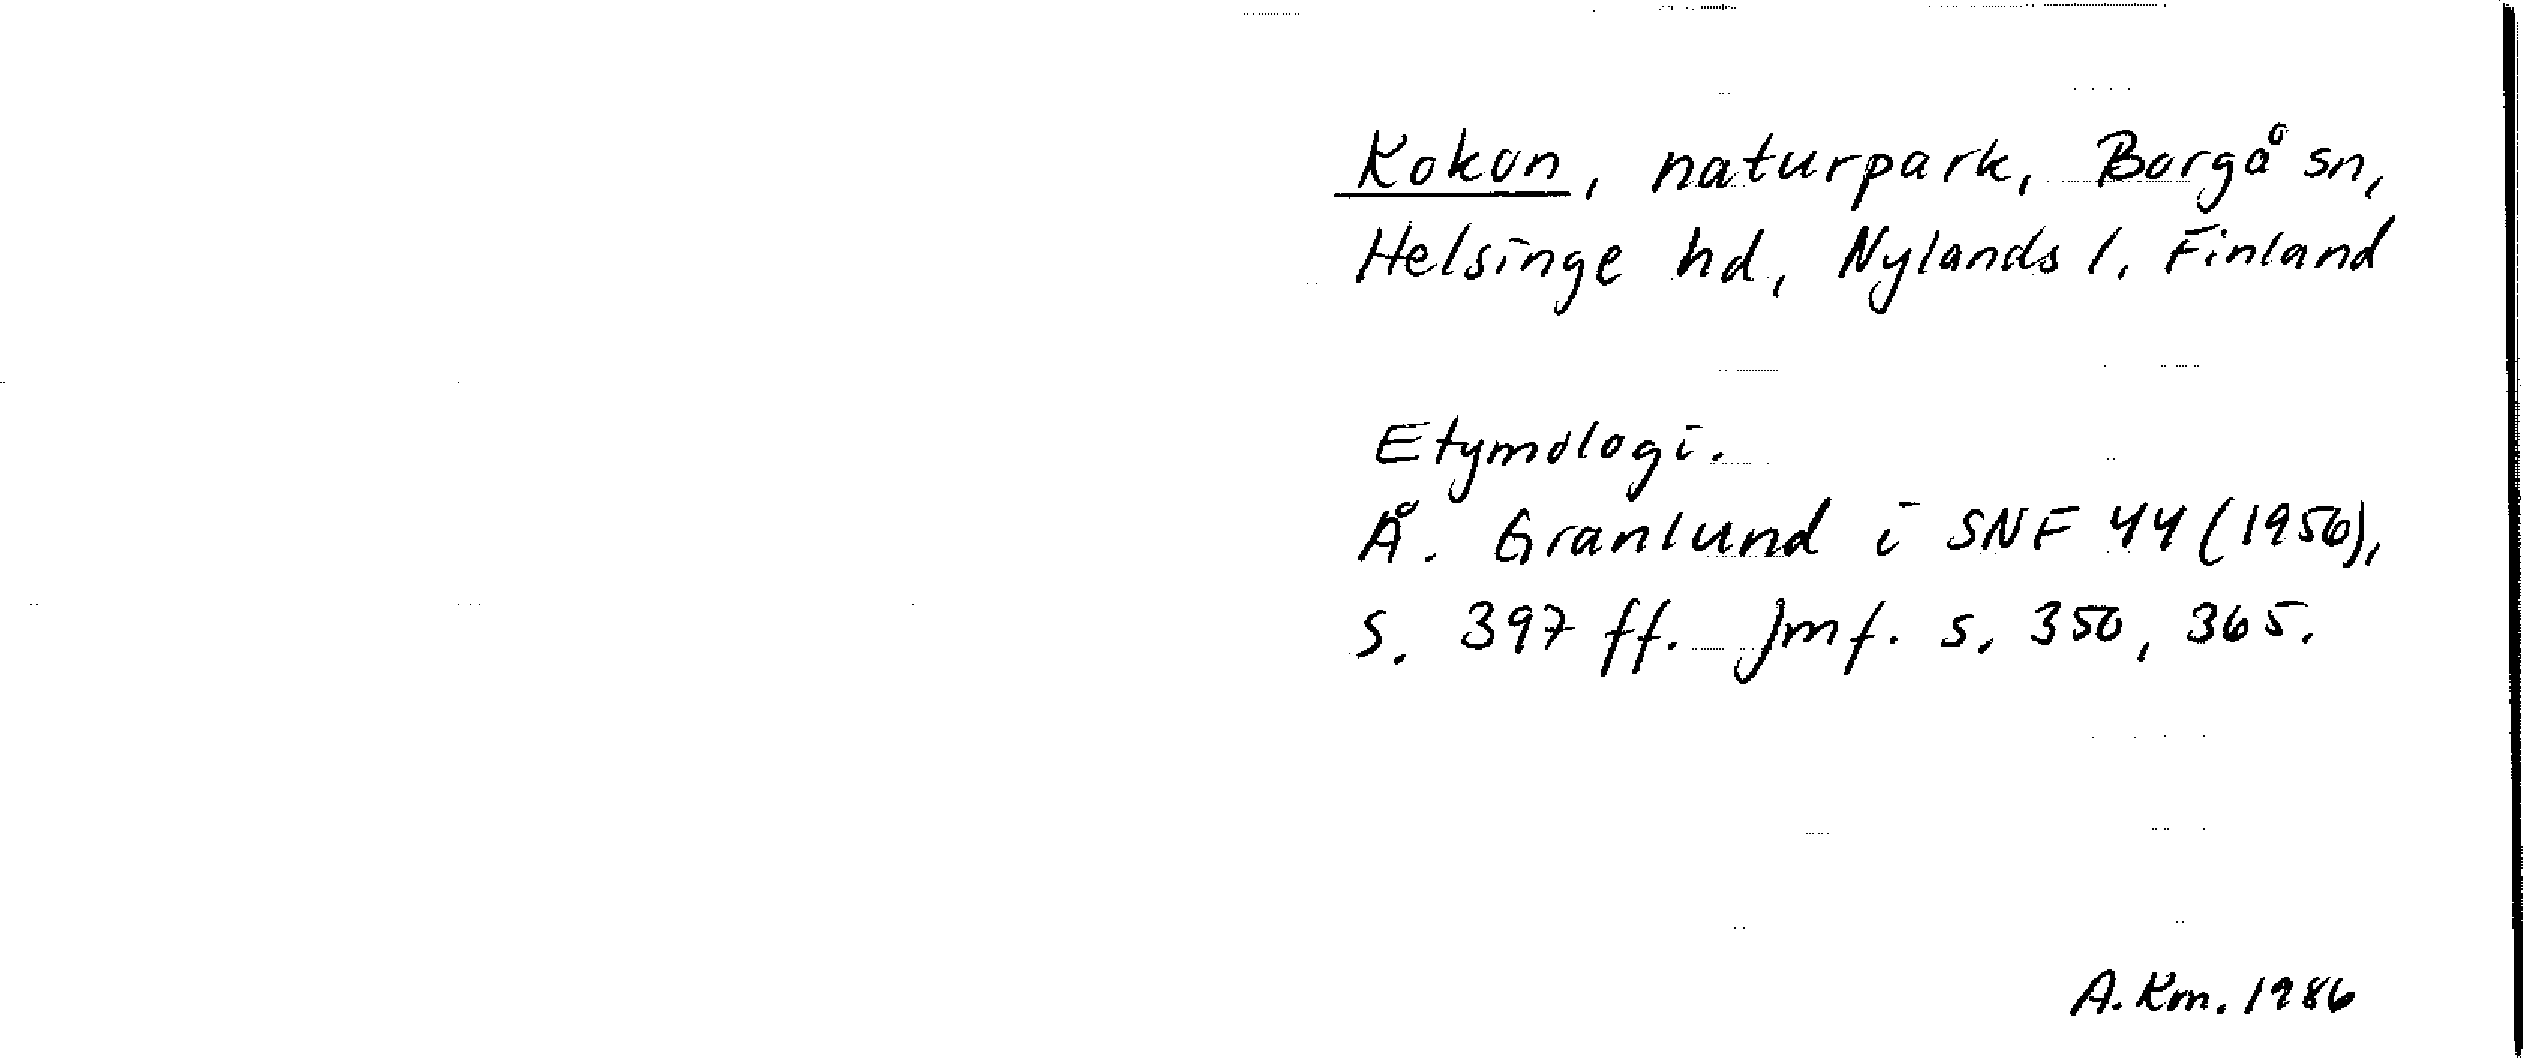 Kokon, naturpark, Borgå sn,
Helsinge hd, Nylands l. Finland
Etymologi.
Å. Granlund i SNF 44 (1956),
s. 397 ff. Jmf. s. 350, 365.
A. Km. 1986